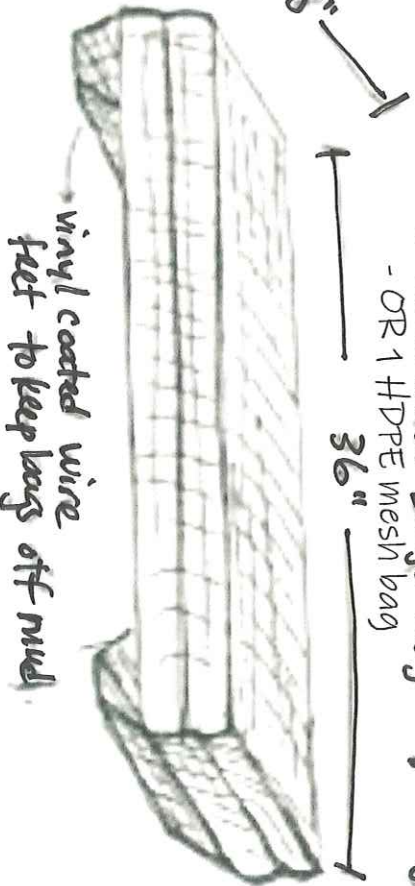 - OR 1 HDPE mesh bag
36"
vinyl coated wire
feet to keep bags off mud